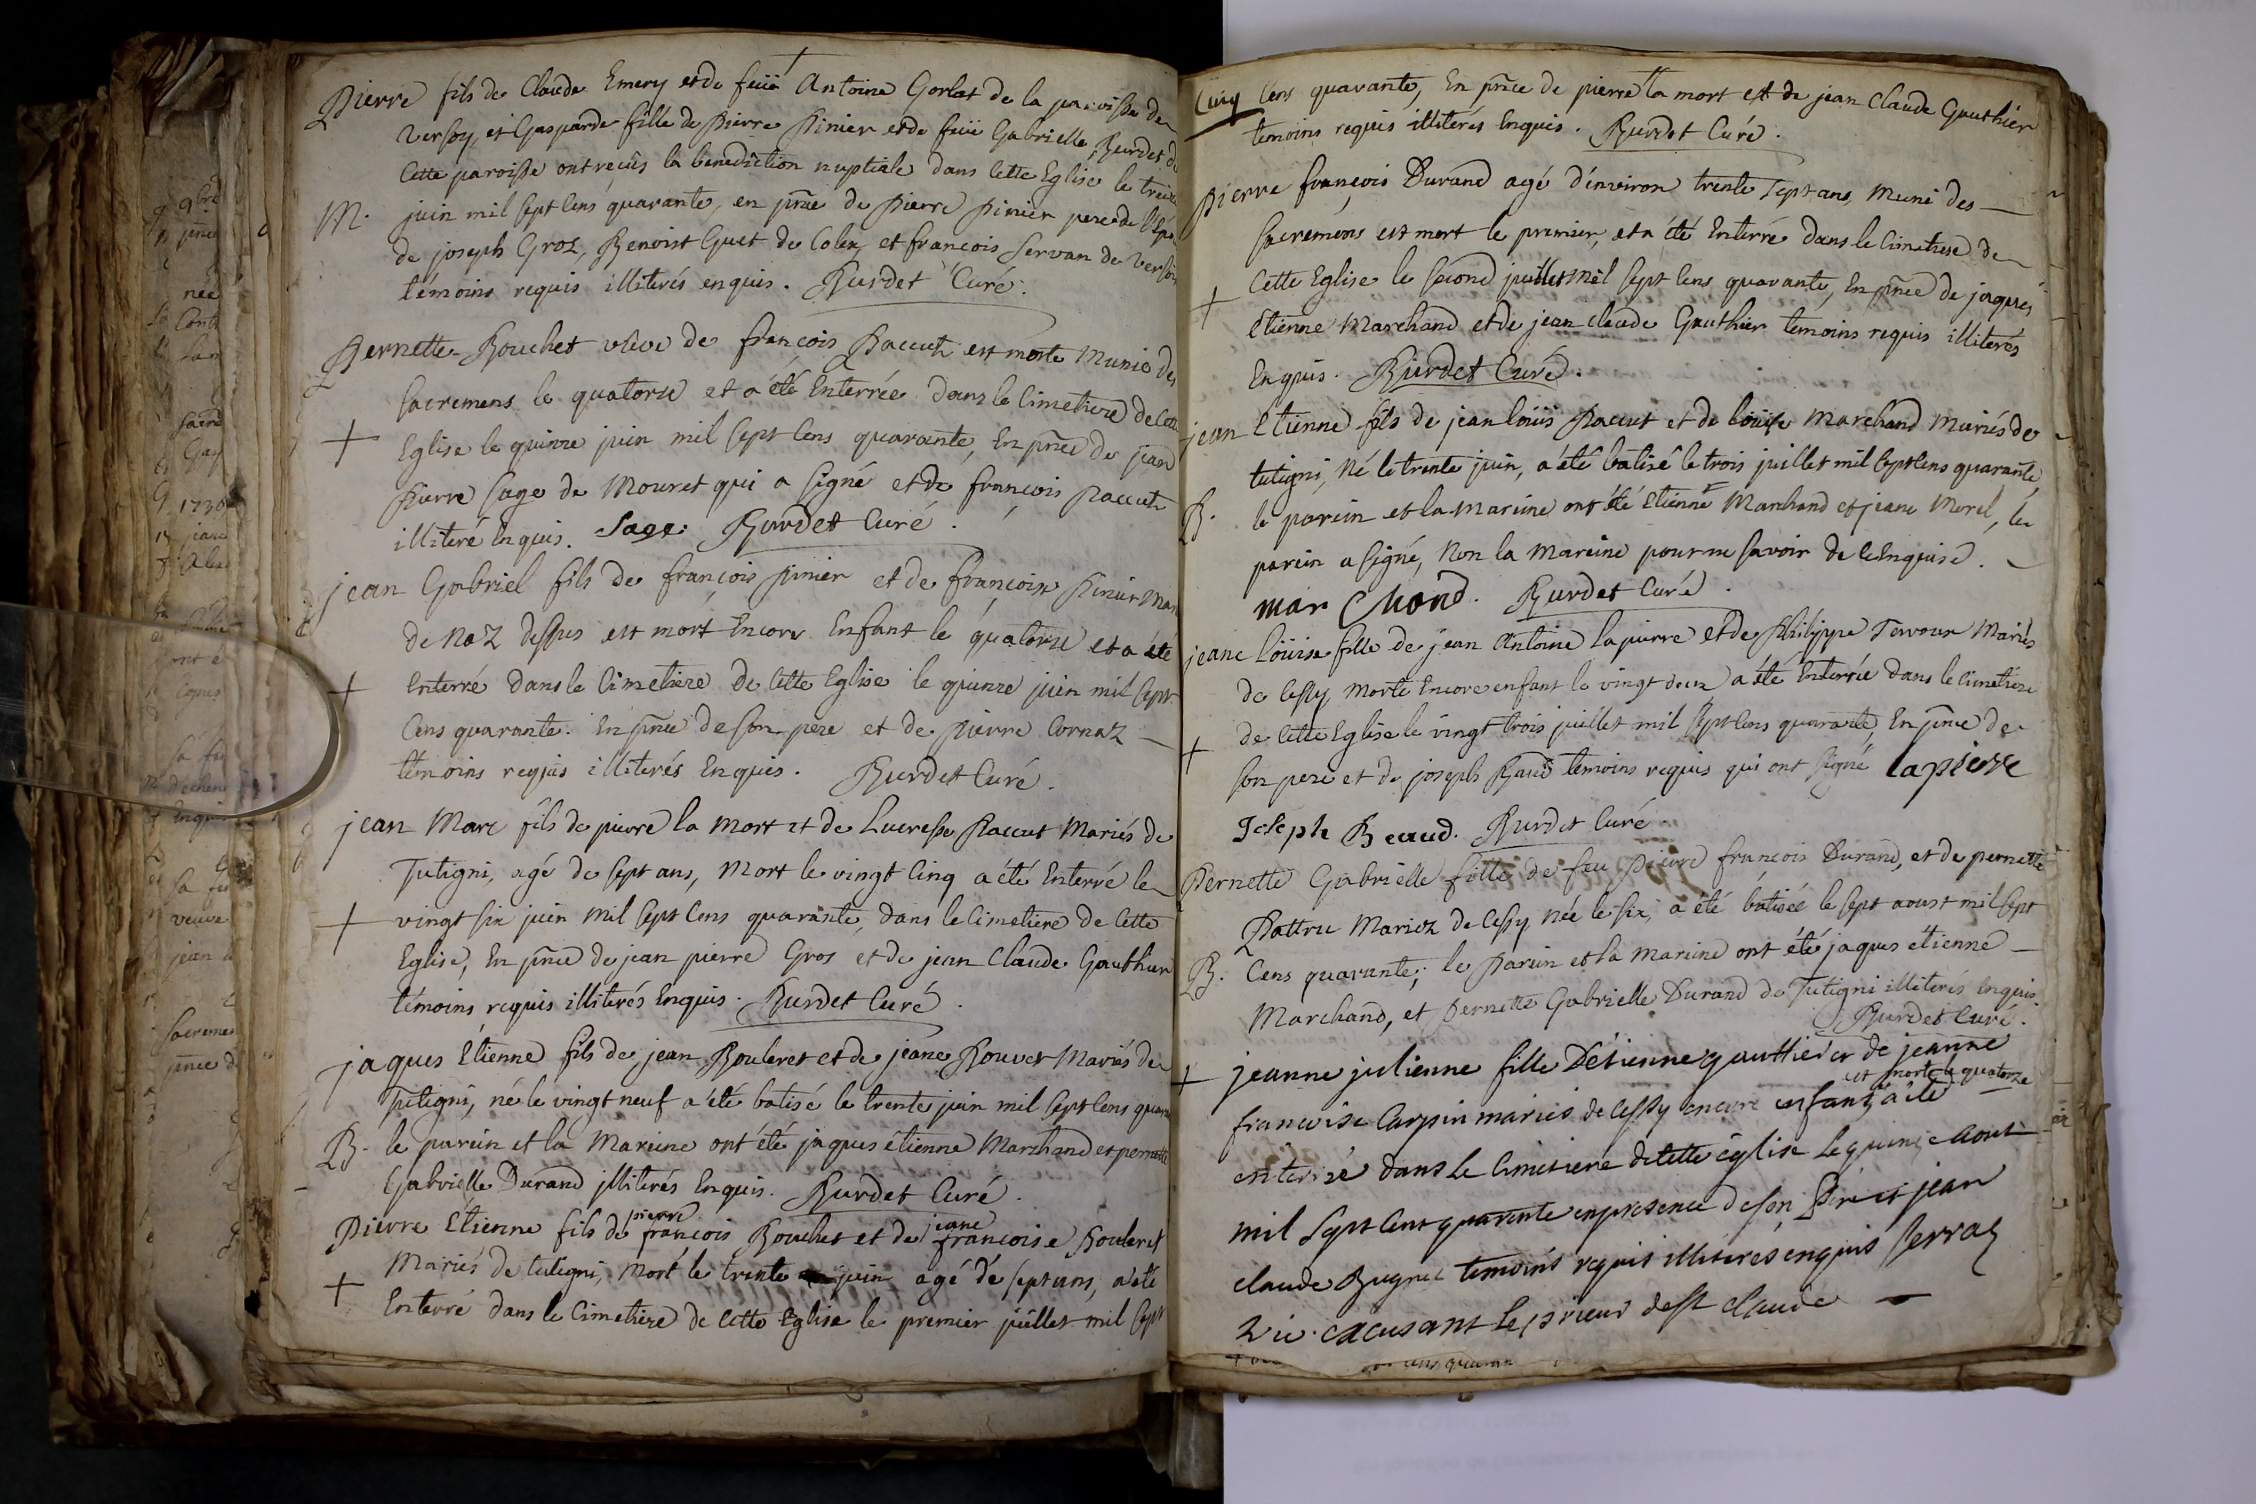 Pierre fils de Claude Emery et de feüe Antoine Gorlat de la paroisse de
Versoy, et Gasparde fille de Pierre Pinier et de feüe Gabrielle Burdet de
Cette paroisse ont reçûs la benediction nuptiale dans cette Eglise le treize
M. juin mil sept Cens quarante, en pñce de Pierre Pinier pere de l'Epouse
de joseph Groz, Benoist Guet de Colex et francois Servan de Versoy
témoins requis illiterés enquis. Burdet Curé.
Pernette Bouchet veuve de francois Paccut est morte Munie des
sacremens le quatorze et a été Enterrée dans le Cimetiere de Cette
+ Eglise le quinze juin mil sept Cens quarante, En pñce de jean
Pierre sage de Mouret qui a signé et de françois Paccut
illiteré Enquis. Sage. Burdet Curé.
jean Gabriel fils de françois pinier et de françoise Pinier Mariés
de Naz dessus est mort Encore Enfant le quatorze et a été
+ Enterré dans le Cimetiere de Cette Eglise le quinze juin mil sept
Cens quarante. En pñce de son pere et de pierre Cornaz
témoins requis illiterés Enquis. Burdet Curé.
jean Marc fils de pierre la Mort et de Lucresse Paccut Mariés de
Tutigni, agé de sept ans, Mort le vingt Cinq a été Enterré le
+ vingt six juin Mil sept Cens quarante, dans le Cimetiere de Cette
Eglise, En pñce de jean pierre Gros et de jean Claude Gauthier
témoins requis illiterés Enquis. Burdet Curé.
jaques Etienne fils de jean Bouleret et de jeane Bouvet Mariés de
Tutigni, né le vingt neuf a été batisé le trente juin mil sept Cens quarante
B. le parein et la Mareine ont été jaques étienne Marchand et pernette
Gabrielle Durand illiterés Enquis. Burdet Curé.
pierre jeane
Pierre Etienne fils de francois Bouchet et de francoise Bouleret
Mariés de tutigni, Mort le trente juin agé de sept ans, a été
+ Enterré dans le Cimetiere de Cette Eglise le premier juillet mil sept
Cens quarante, En pñce de pierre la mort et de jean Claude Gauthier
temoins requis illiterés Enquis. Burdet Curé.
Pierre françois Durand agé d'environ trente sept ans, Muni des
sacremens est mort le premier, et a été Enterré dans le Cimetiere de
+ Cette Eglise le second juillet mil sept Cens quarante, En pñce de jaques
Etienne Marchand et de jean claude Gauthier temoins requis illiterés
Enquis. Burdet Curé.
jean Etienne fils de jean loüis Paccut et de loüise Marchand Mariés de
tutigni, Né le trente juin, a été batisé le trois juillet mil sept Cens quarante,
B. le parein et la Mareine ont été Etienne Marchand et jeane Morel, le
parein a signé, Non la Mareine pour ne savoir de ce Enquise.
mar Chand. Burdet Curé.
jeane loüise fille de jean Antoine Lapierre et de Philippe Tervoux Mariés
de Cessy, Morte Encore enfant le vingt deux a été Enterrée dans le Cimetiere
+ de Cette Eglise le vingt trois juillet mil sept Cens quarante, En pñce de
son pere et de joseph Baud témoins requis qui ont signé lapierre
Joseph Beaud. Burdet Curé.
Pernette Gabrielle fille de feu Pierre françois Durand, et de pernette
Mariez de Cessy née le six, a été batisée le sept aoust mil sept
B. Cens quarante; le Parein et la Mareine ont été jaques étienne
Marchand, et Pernette Gabrielle Durand de Tutigni illiterés enquis.
Burdet Curé.
+ jeanne julienne fille D'etienne gauthier et de jeanne
est morte le quatorze
francoise Carpin mariés de Cessy encore enfant a été
enterrée dans le Cimetiere de Cette église le quinze aout
mil sept Cent quarente en presence de son Pere et jean
claude Bugnet temoins requis illiteres enquis Perraz
vic. Cacusant le prieur de st claude